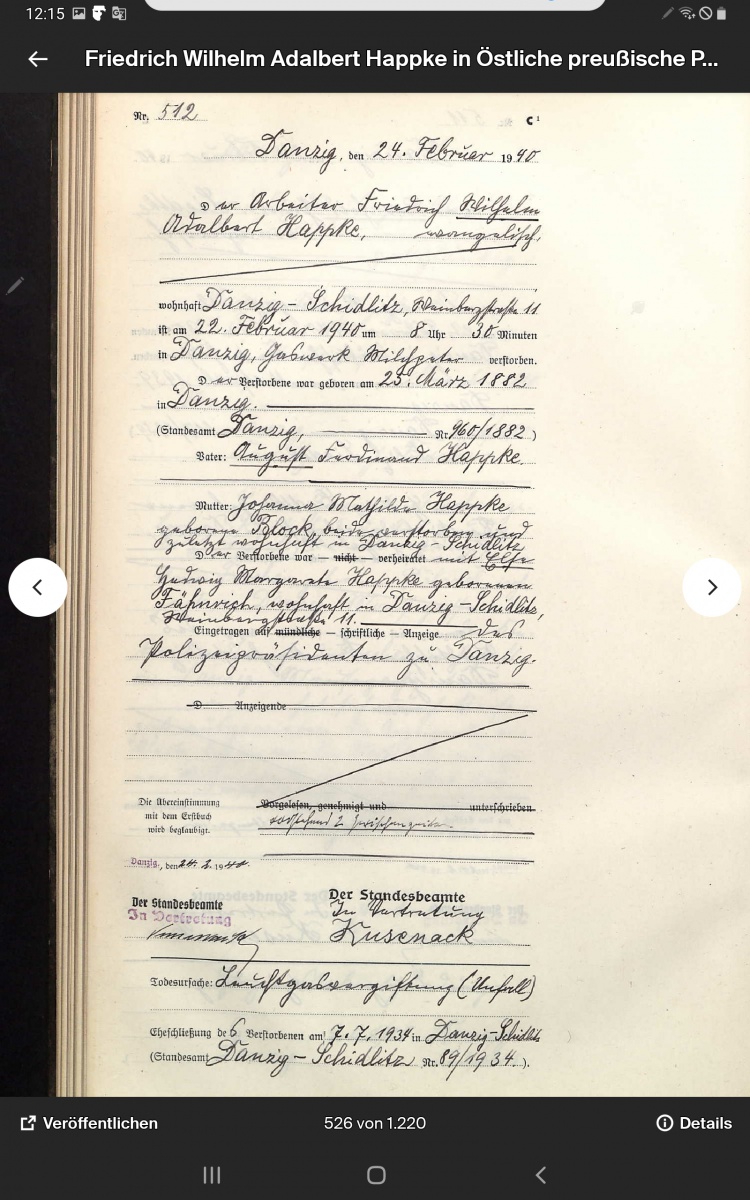 12:15
Friedrich Wilhelm Adalbert Happke in Östliche preußische P...
Nr. 512
C¹
Danzig, den 24. Februar 1940
Der Arbeiter Friedrich Wilhelm
Adalbert Happke, evangelisch,
wohnhaft Danzig-Schidlitz, Weinbergstraße 11
ist am 22. Februar 1940 um 8 Uhr 30 Minuten
in Danzig, Gaswerk Milchpeter verstorben.
Der Verstorbene war geboren am 25. März 1882
in Danzig.
(Standesamt Danzig, Nr. 960/1882)
Vater: August Ferdinand Happke.
Mutter: Johanna Mathilde Happke
geborene Block, beide verstorben und
zuletzt wohnhaft in Danzig-Schidlitz
Der Verstorbene war — nicht — verheiratet mit Else
Hedwig Margarete Happke geborenen
Fähnrich, wohnhaft in Danzig-Schidlitz,
Weinbergstraße 11.
Eingetragen auf mündliche — schriftliche — Anzeige des
Polizeipräsidenten zu Danzig.
D Anzeigende
Die Übereinstimmung
mit dem Erstbuch
wird beglaubigt.
Vorgelesen, genehmigt und unterschrieben
vorstehend 2 Zwischenzeilen
Danzig, den 24. 2. 1940.
Der Standesbeamte
In Vertretung
Der Standesbeamte
In Vertretung
Kusenack
Todesursache: Leuchtgasvergiftung (Unfall)
Eheschließung des Verstorbenen am 7.7.1934 in Danzig-Schidlitz
(Standesamt Danzig-Schidlitz Nr. 89/1934.).
Veröffentlichen
526 von 1.220
Details